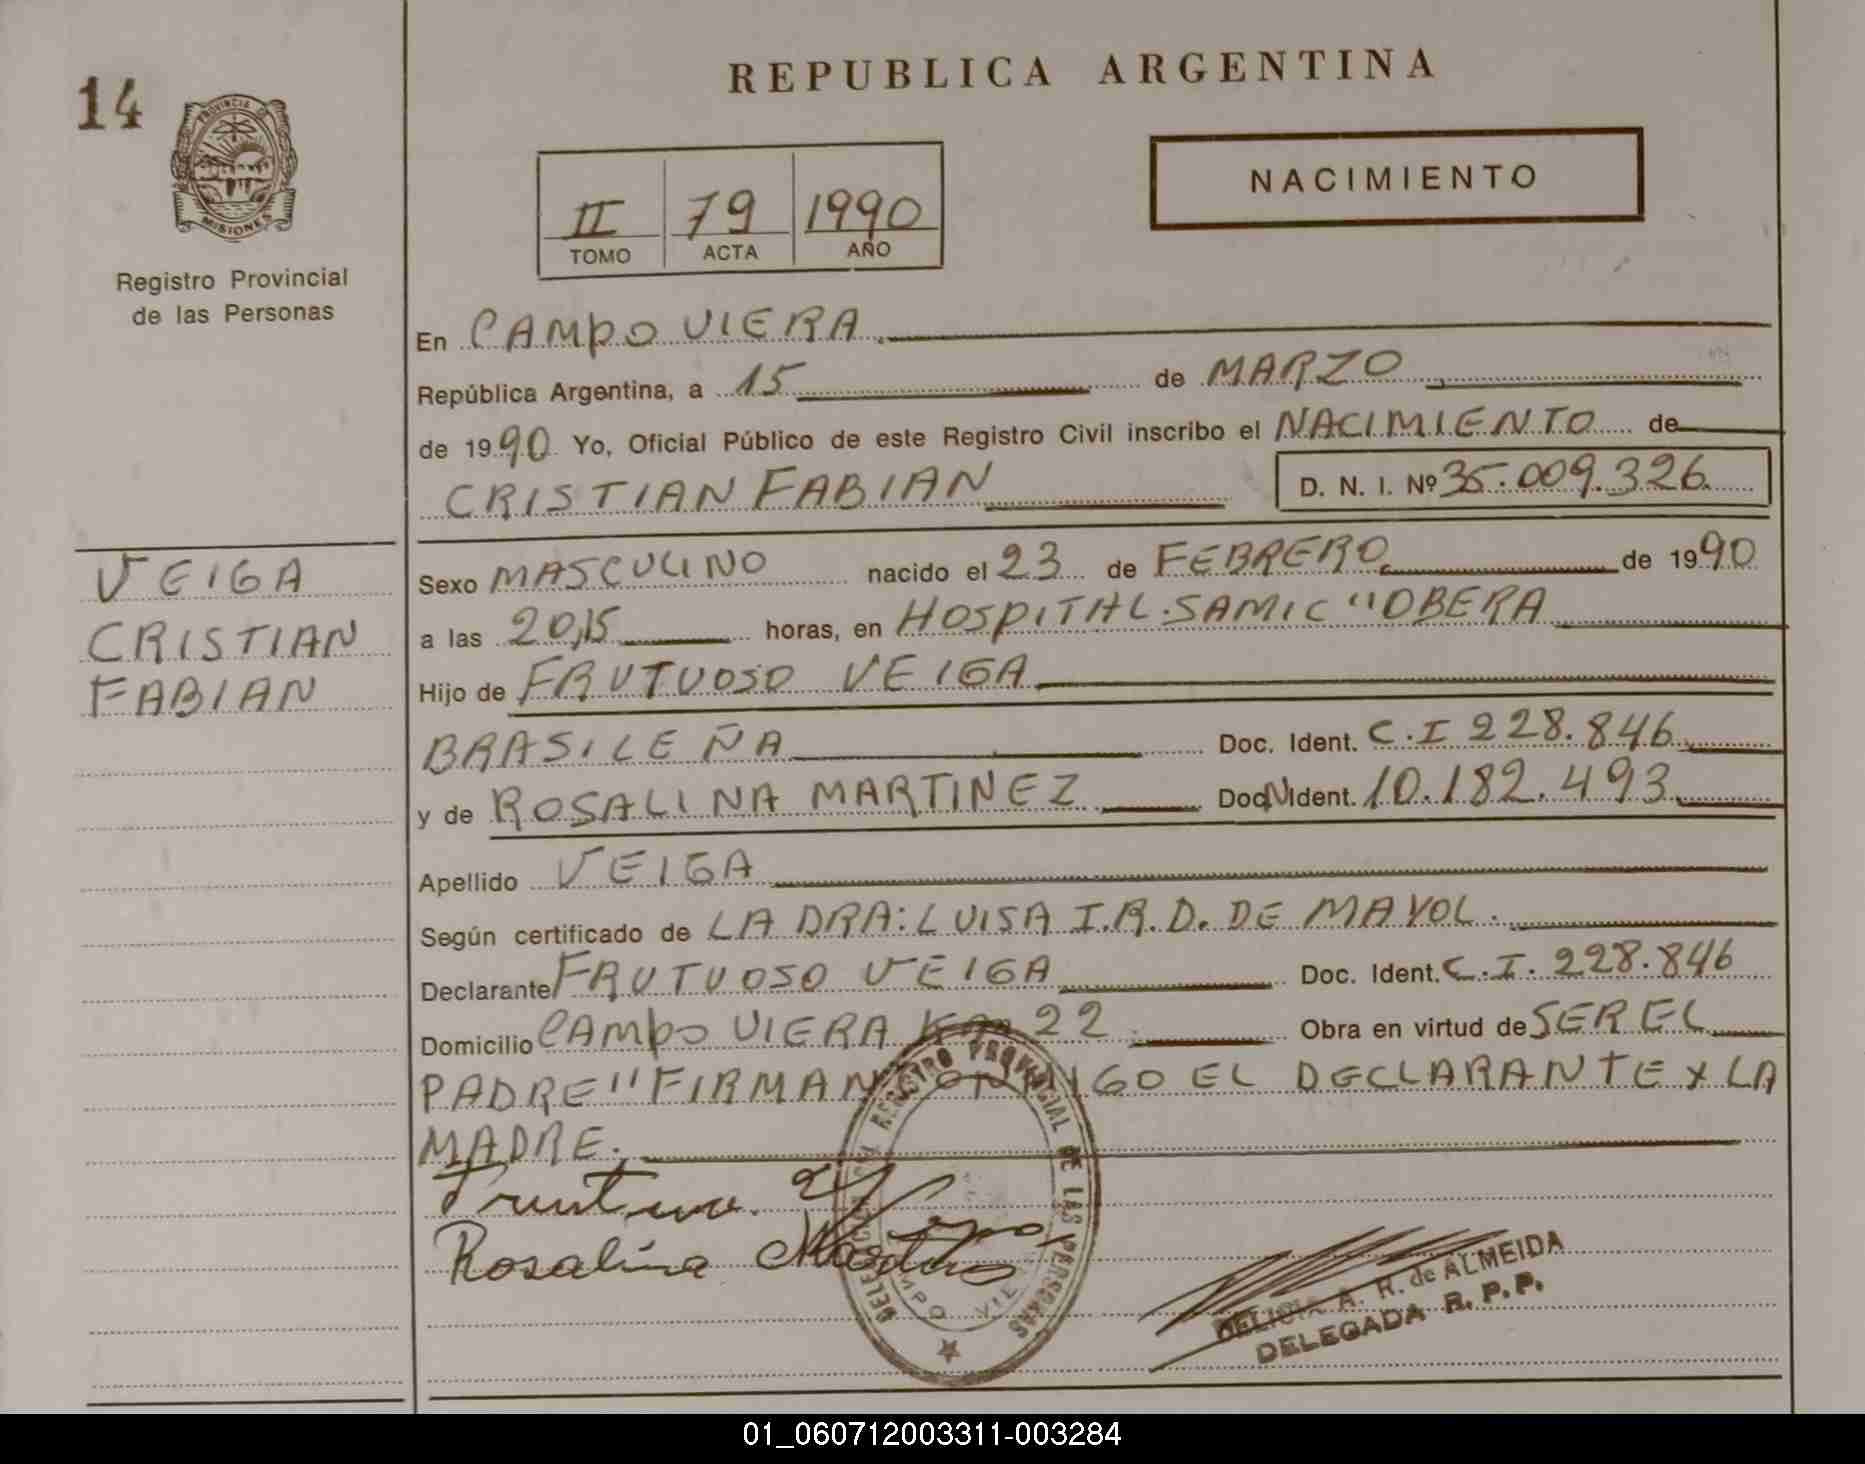 14
PROVINCIA DE
MISIONES
Registro Provincial
de las Personas
VEIGA
CRISTIAN
FABIAN
REPUBLICA ARGENTINA
II 79 1990
TOMO ACTA AÑO
NACIMIENTO
En CAMPO VIERA
República Argentina, a 15 de MARZO
de 1990 Yo, Oficial Público de este Registro Civil inscribo el NACIMIENTO de
CRISTIAN FABIAN D. N. I. Nº 35.009.326
Sexo MASCULINO nacido el 23 de FEBRERO de 1990
a las 20,15 horas, en HOSPITAL SAMIC "OBERA
Hijo de FRUTUOSO VEIGA
BRASILEÑA Doc. Ident. C.I 228.846
y de ROSALINA MARTINEZ Doc. Ident. 10.182.493
Apellido VEIGA
Según certificado de LA DRA: LUISA I.R.D. DE MAYOL.
Declarante FRUTUOSO VEIGA Doc. Ident. C.I. 228.846
Domicilio CAMPO VIERA Km 22 Obra en virtud de SER EL
PADRE" FIRMAN CONMIGO EL DECLARANTE Y LA
MADRE.
Rosalina
REGISTRO PROVINCIAL DE LAS PERSONAS
DELICIA A. R. de ALMEIDA
DELEGADA R. P. P.
01_060712003311-003284